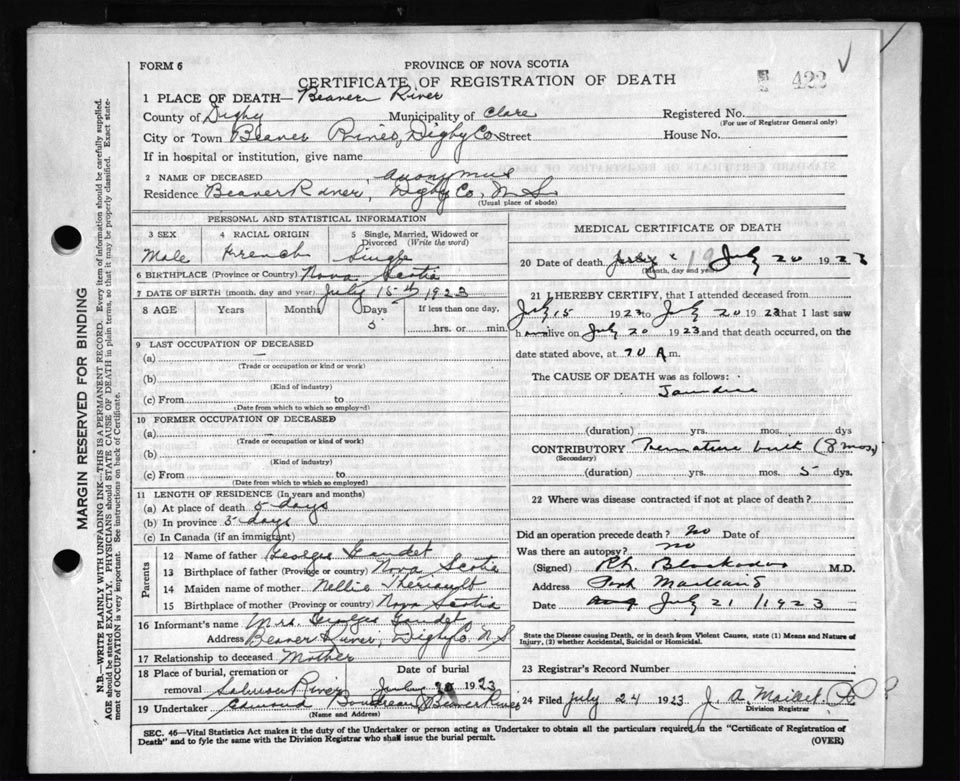 FORM 6
PROVINCE OF NOVA SCOTIA
CERTIFICATE OF REGISTRATION OF DEATH
422
1 PLACE OF DEATH—Beaver River
County of Digby Municipality of Clare Registered No.
(For use of Registrar General only)
City or Town Beaver River, Digby Co Street House No.
If in hospital or institution, give name
2 NAME OF DECEASED Anonymus
Residence Beaver River, Digby Co. N S
(Usual place of abode)
PERSONAL AND STATISTICAL INFORMATION
3 SEX 4 RACIAL ORIGIN 5 Single, Married, Widowed or Divorced (Write the word)
Male French Single
6 BIRTHPLACE (Province or Country) Nova Scotia
7 DATE OF BIRTH (month, day and year) July 15th 1923
8 AGE Years Months Days If less than one day,
5 hrs. or min.
9 LAST OCCUPATION OF DECEASED
(a) —
(Trade or occupation or kind or work)
(b)
(Kind of industry)
(c) From to
(Date from which to which so employed)
10 FORMER OCCUPATION OF DECEASED
(a)
(Trade or occupation or kind of work)
(b)
(Kind of industry)
(c) From to
(Date from which to which so employed)
11 LENGTH OF RESIDENCE (In years and months)
(a) At place of death 5 days
(b) In province 5 days
(c) In Canada (if an immigrant)
Parents
12 Name of father Georges Gaudet
13 Birthplace of father (Province or country) Nova Scotia
14 Maiden name of mother Nellie Theriault
15 Birthplace of mother (Province or country) Nova Scotia
16 Informant's name Mrs. Georges Gaudet
Address Beaver River, Digby Co. N S
17 Relationship to deceased Mother
18 Place of burial, cremation or removal Salmon River Date of burial July 20 1923
19 Undertaker Edmond Boudreau Beaver River
(Name and Address)
MEDICAL CERTIFICATE OF DEATH
20 Date of death July 20 1923
(Month, day and year)
21 I HEREBY CERTIFY, that I attended deceased from
July 15 1923 to July 20 1923 that I last saw
h alive on July 20 1923 and that death occurred, on the
date stated above, at A m.
The CAUSE OF DEATH was as follows:
Jaundice
(duration) yrs. mos. dys
CONTRIBUTORY Premature birth (8 mos)
(Secondary)
(duration) yrs. mos. 5 dys.
22 Where was disease contracted if not at place of death?
Did an operation precede death? No Date of
Was there an autopsy? no
(Signed) M.D.
Address Port Maitland
Date July 21 1923
State the Disease causing Death, or in death from Violent Causes, state (1) Means and Nature of Injury, (2) whether Accidental, Suicidal or Homicidal.
23 Registrar's Record Number
24 Filed July 24 1923 J. A. Maillet
Division Registrar
SEC. 46—Vital Statistics Act makes it the duty of the Undertaker or person acting as Undertaker to obtain all the particulars required in the "Certificate of Registration of
Death" and to fyle the same with the Division Registrar who shall issue the burial permit. (OVER)
MARGIN RESERVED FOR BINDING
N.B.—WRITE PLAINLY WITH UNFADING INK—THIS IS A PERMANENT RECORD. Every item of information should be carefully supplied.
AGE should be stated EXACTLY. PHYSICIANS should STATE CAUSE OF DEATH in plain terms, so that it may be properly classified. Exact state-
ment of OCCUPATION is very important. See instructions on back of Certificate.